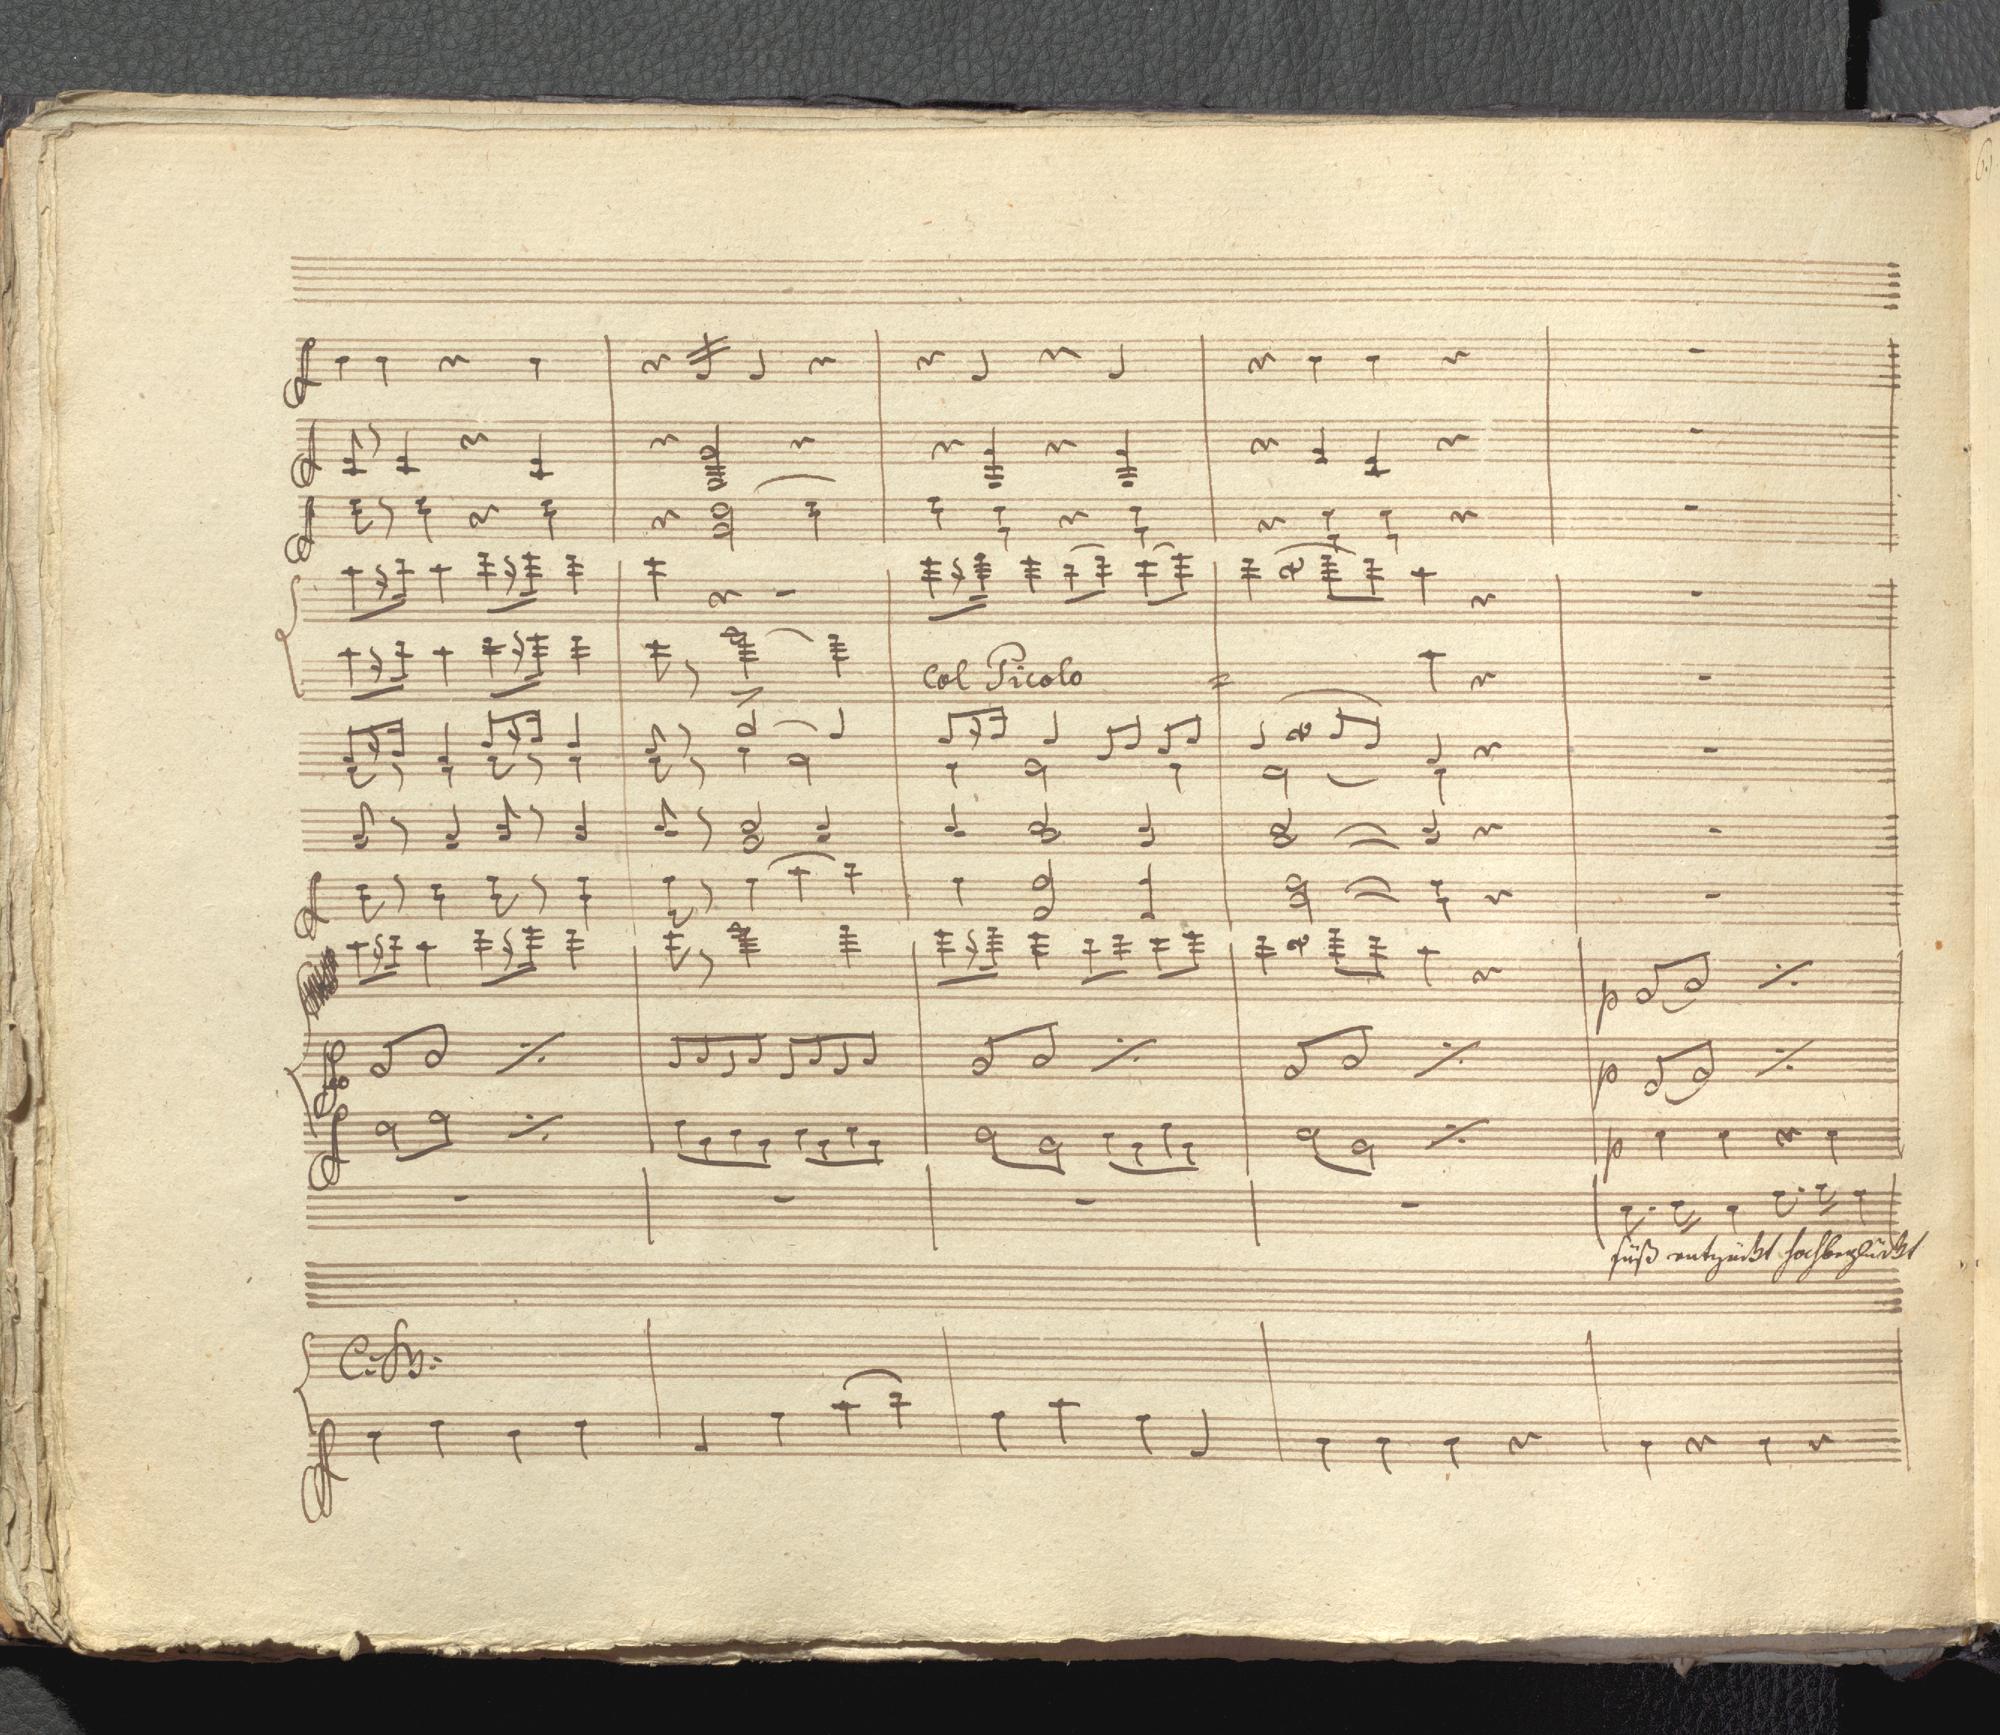 col Picolo
p
p
p
süß entzückt hochbeglückt